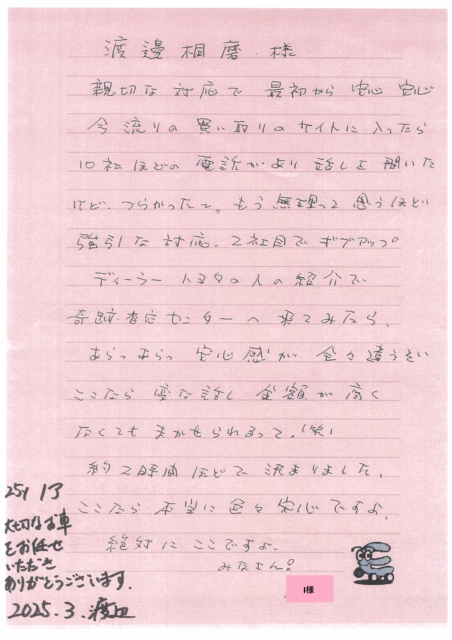 渡邊相磨 様
親切な対応で 最初から 安心 安心
今流りの買い取りのサイトに入ったら
10社ほどの電話があり 話しを聞いた
けど、つらかったっ。もう無理って思うほど
強引な対応、2社目でギブアップ。
ディーラートヨタの人の紹介で
奇跡査定センターへ来てみたら、
あらっあらっ 安心感が 全々違うぞい
ここなら 変な話し 金額が高く
なくてもまかせられるって。(笑)
約2時間ほどで 決まりました。
ここなら本当に色々安心ですよ。
絶対にここですよ。
みなさん!
I様
大切なお車
をお任せ
いただき
ありがとうございます.
2025.3.渡辺